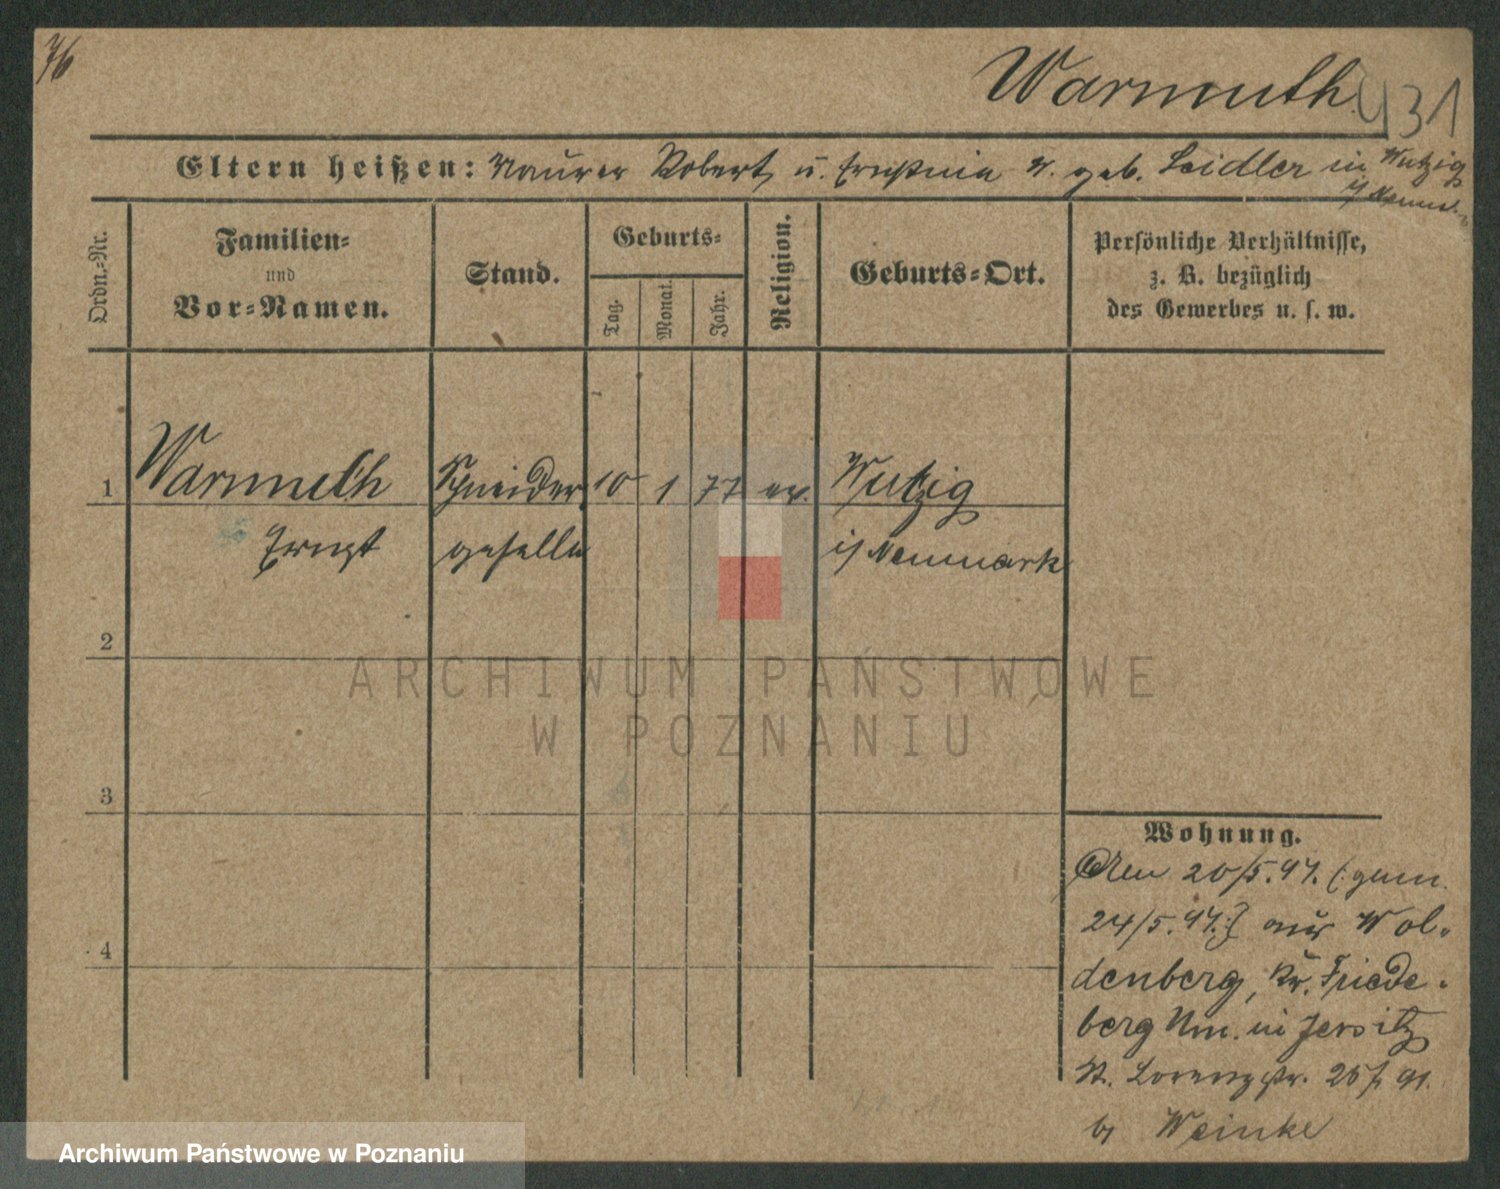 76
Warmuth
431
Eltern heißen: Maurer Robert u. Ernstine W. geb. Seidler in Wutzig
i/ Neum.
Ordn.-Nr.
Familien-
und
Vor-Namen.
Stand.
Geburts-
Tag.
Monat.
Jahr.
Religion.
Geburts-Ort.
Persönliche Verhältnisse,
z. B. bezüglich
des Gewerbes u. s. w.
1 Warmuth Schneider 10 1 77 ev. Wutzig
Ernst geselle i/ Neumark
2
3
4
Wohnung.
Den 20/5.97. (: gem.
24/5.97 :) aus Wol-
denberg, Kr. Friede-
berg Nm. in Jersitz
St. Lorenzstr.
b/ Weinke
ARCHIWUM PAŃSTWOWE
W POZNANIU
Archiwum Państwowe w Poznaniu